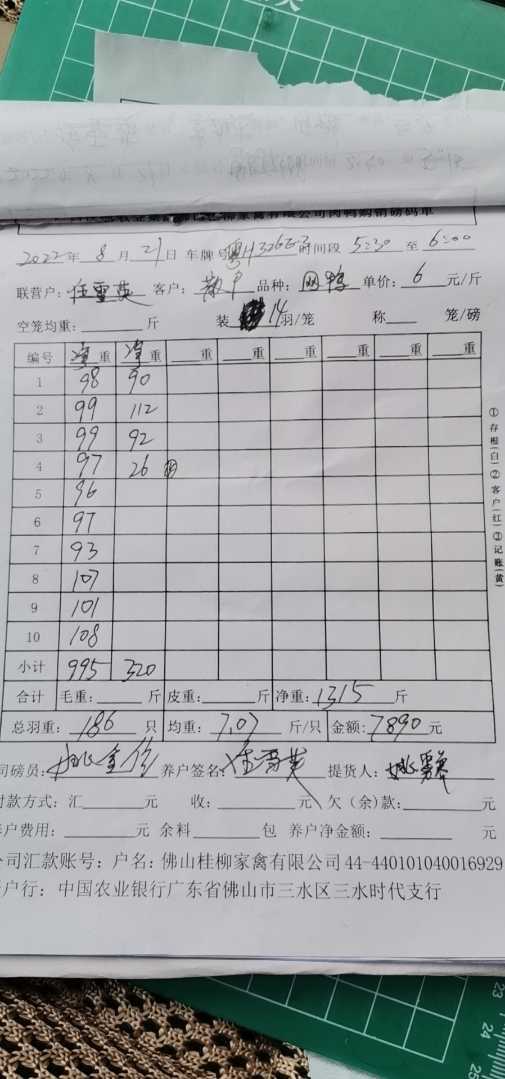 柳家禽有限公司肉鸭购销磅码单
2022年 8 月 21 日 车牌号 粤H326E3 时间段 5:30 至 6:00
联营户: 任雪英 客户: 散户 品种: 网鸭 单价: 6 元/斤
空笼均重: 斤 装 14 羽/笼 称 笼/磅
编号 净重 净重 重 重 重 重 重 重
1 98 90
2 99 112
3 99 92
4 97 26
5 96
6 97
7 93
8 107
9 101
10 108
小计 995 320
合计 毛重: 斤 皮重: 斤 净重: 1315 斤
总羽重: 186 只 均重: 7.07 斤/只 金额: 7890 元
司磅员: 养户签名: 提货人:
付款方式: 汇 元 收: 元 欠(余)款: 元
养户费用: 元 余料 包 养户净金额: 元
公司汇款账号: 户名: 佛山桂柳家禽有限公司 44-440101040016929
开户行: 中国农业银行广东省佛山市三水区三水时代支行
①存根(白)②客户(红)③记账(黄)
23
24
25